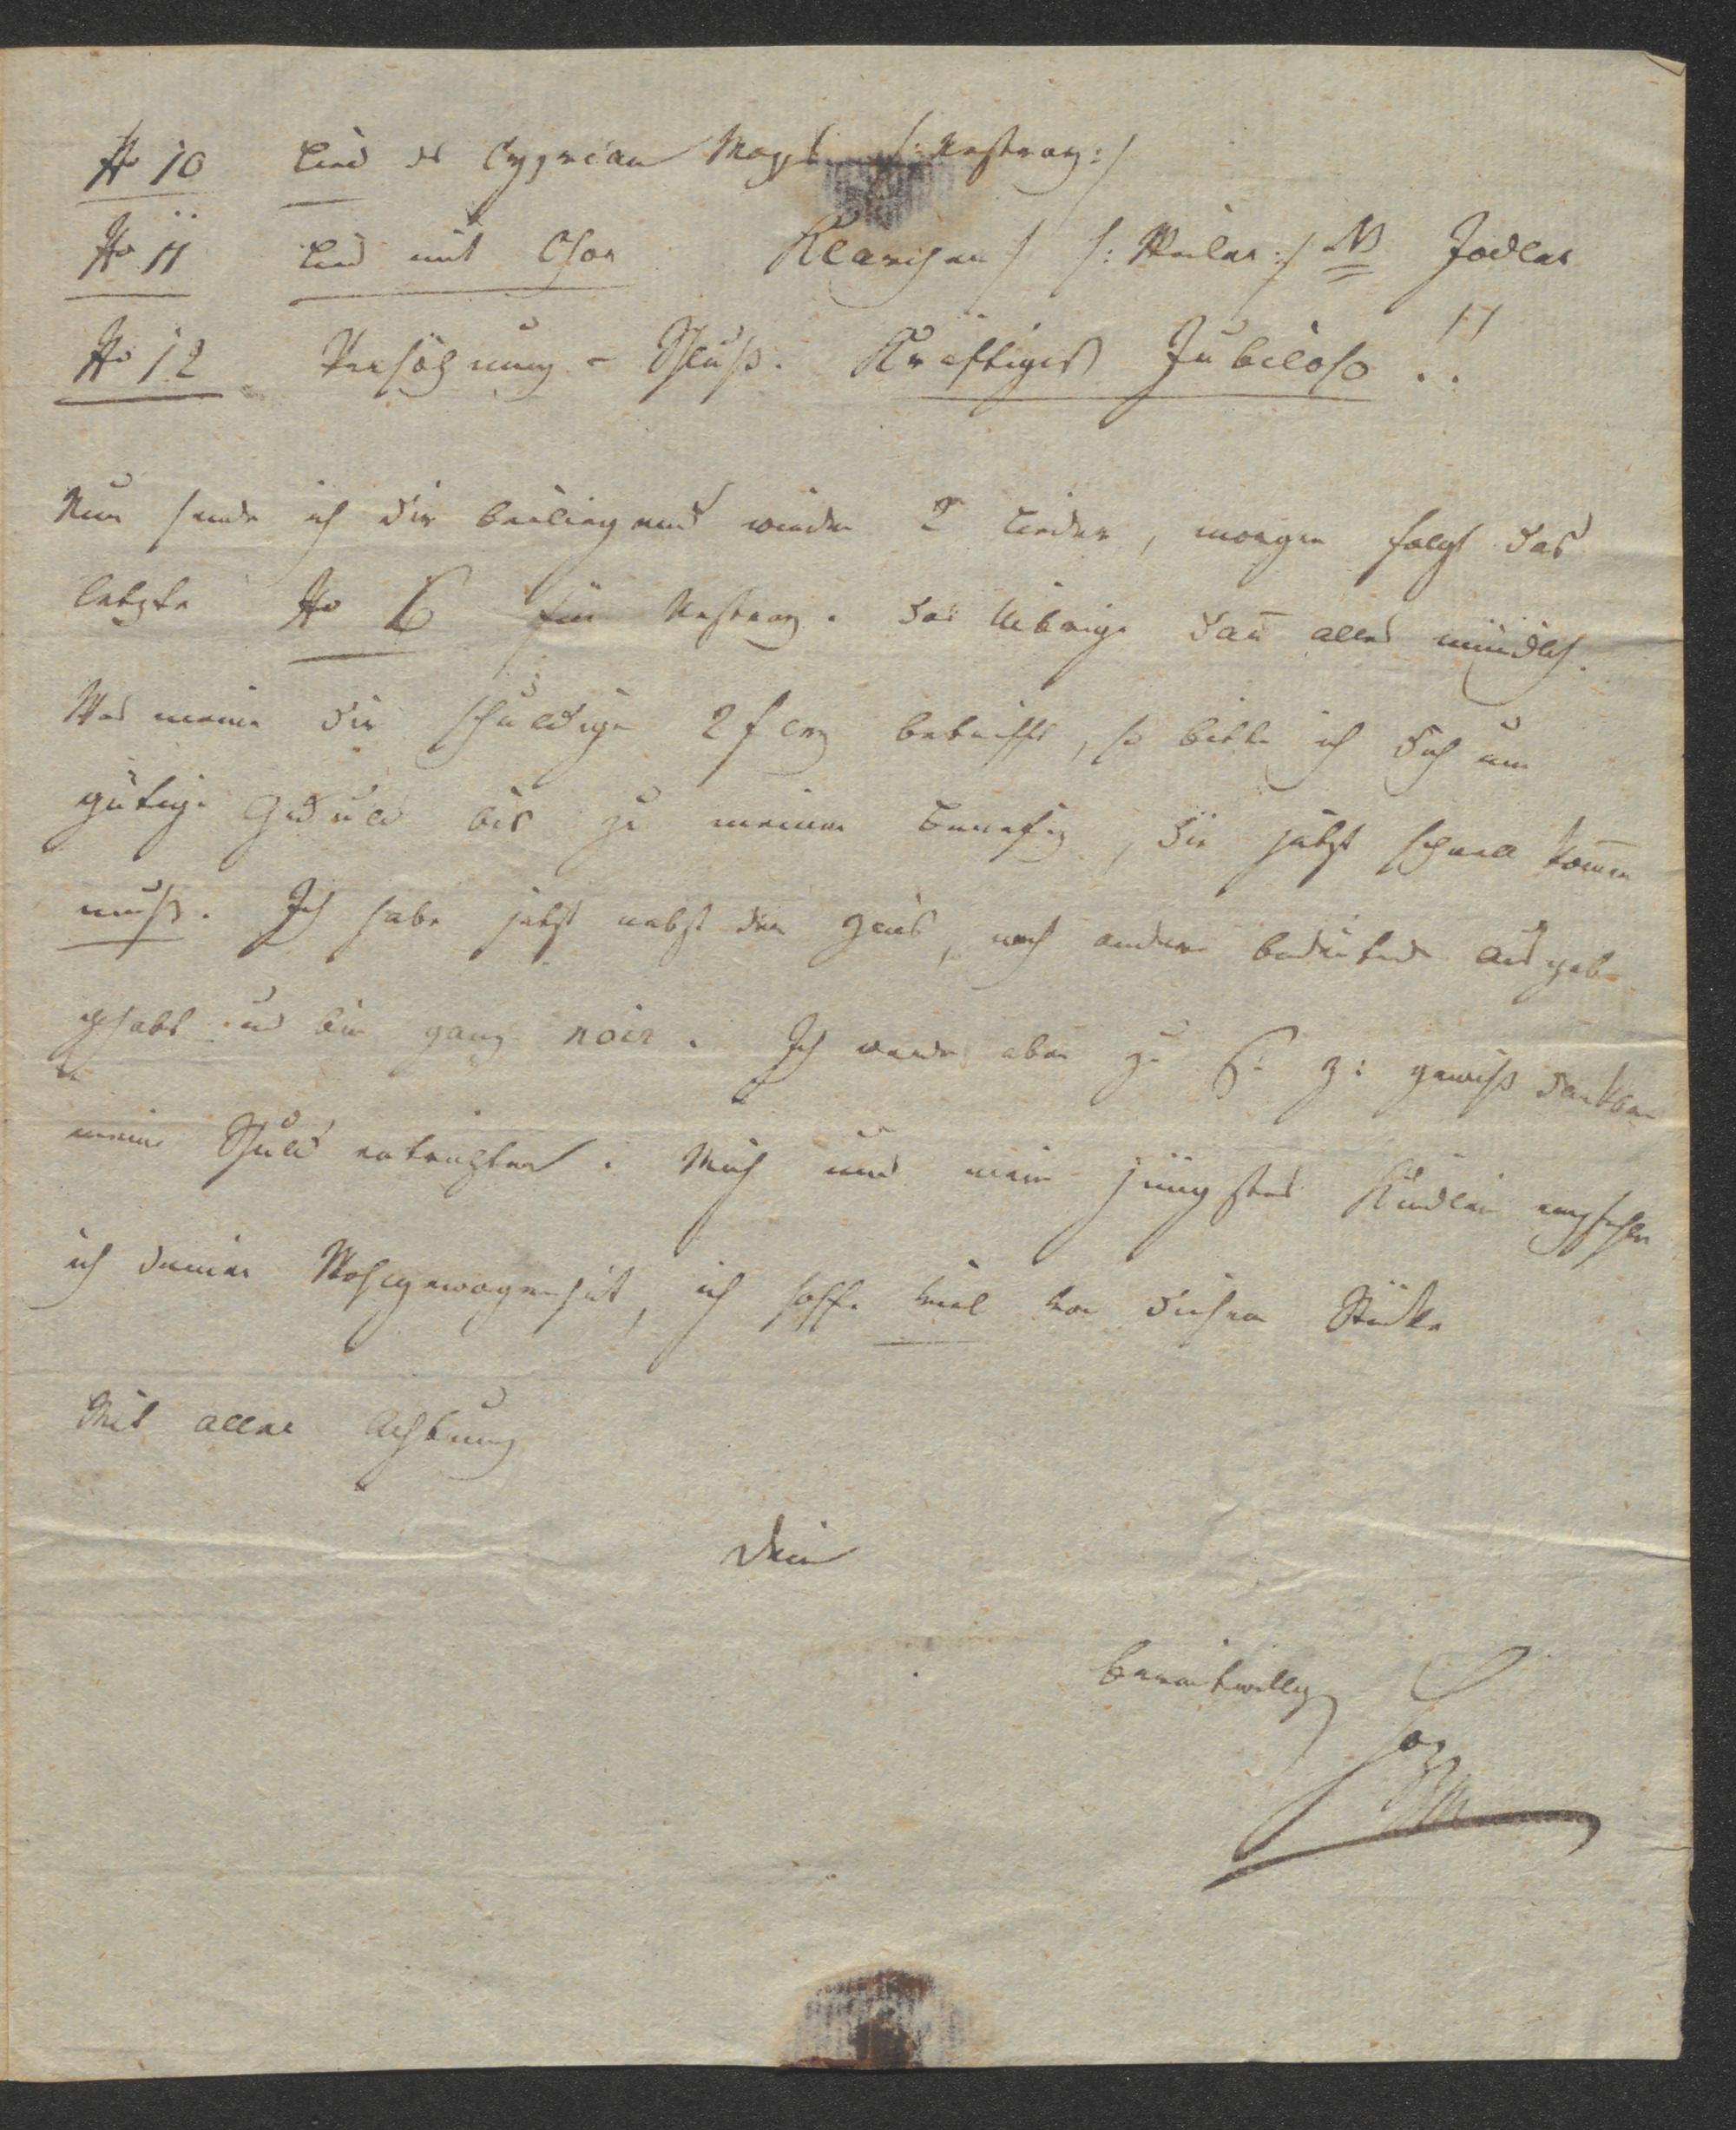 No 10 Lied des Cyprian Mops /: Nestroy :/
No 11 Lied mit Chor Klärchen /: Weiler :/ NB Jodler
No 12 Versöhnung – Schluß. Kräftiges Jubiloso !!
Nun sende ich dir beiliegend wieder 2 Lieder, morgen folgt das
letzte No 6 für Nestroy. Das Uibrige dañ alles mündlich.
Was meine dir schuldige 2 f betrifft, so bitte ich dich um
gütige Geduld bis zu meiner Benefiz, die jetzt schnell kom̅en
muß. Ich habe jetzt nebst den Zins, noch andere bedeutende Ausgaben
gehabt und bin ganz noir. Ich werde aber zu S: Z: gewiß dankbar
meine Schuld entrichten. Mich und mein jüngstes Kindlein empfehle
ich deiner Wohlgewogenheit, ich hoffe viel von diesem Stücke
Mit aller Achtung
Dein
bereitwillig